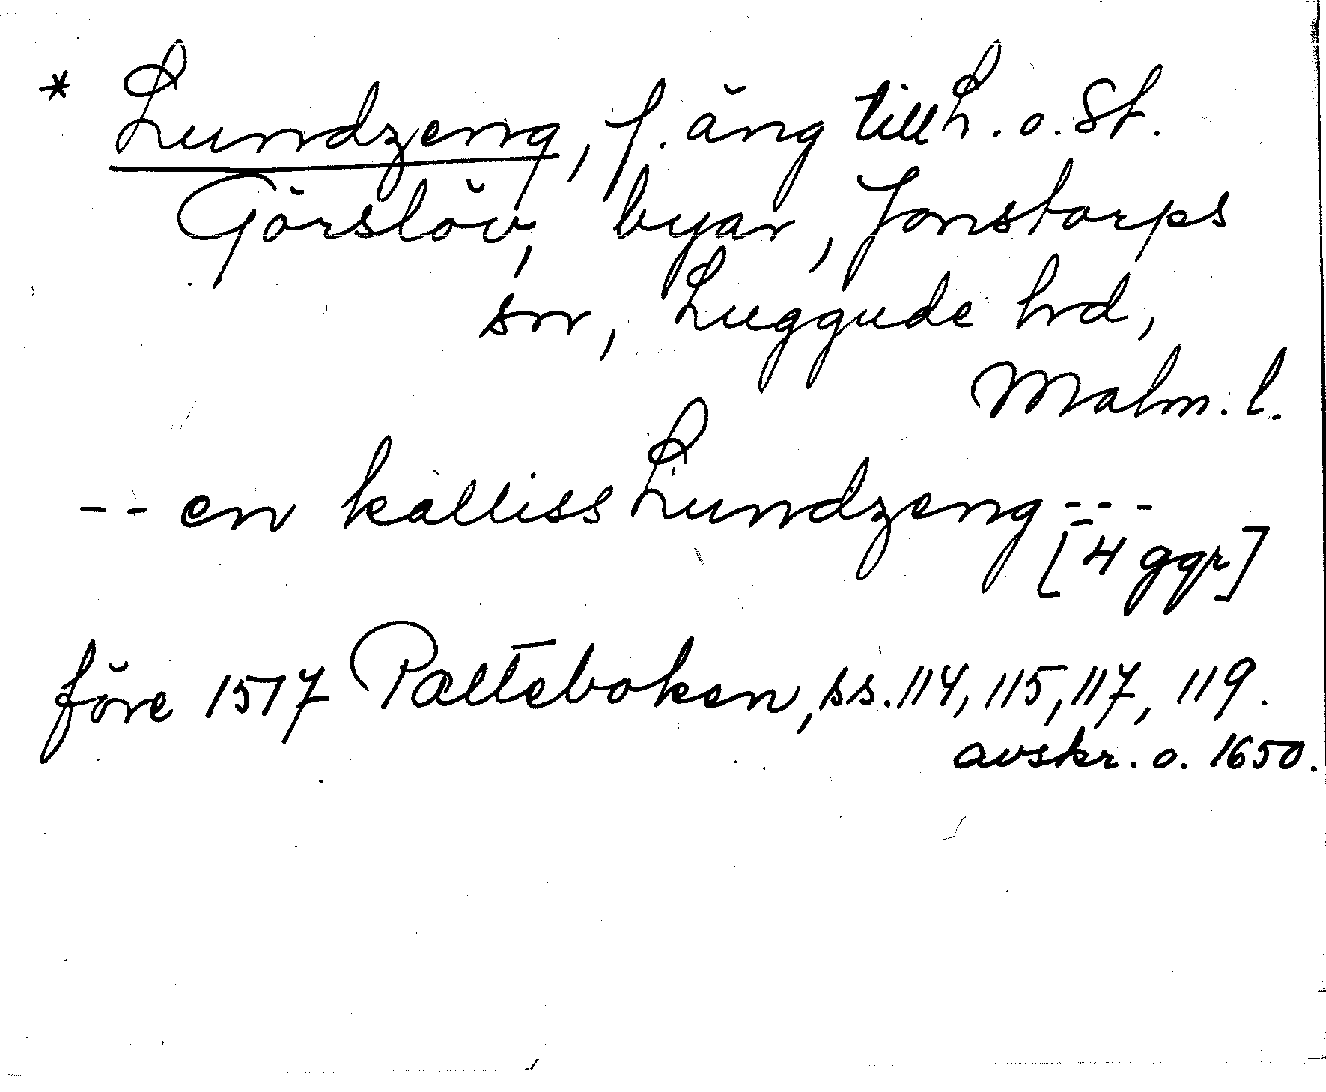 * Lundzeng, f. äng till L. o. St.
Görslöv, byar, Jonstorps
sn, Luggude hrd,
Malm. l.
-- en kalliss Lundzeng ---
[4 ggr]
före 1517 Palteboken, ss. 114, 115, 117, 119.
avskr. o. 1650.